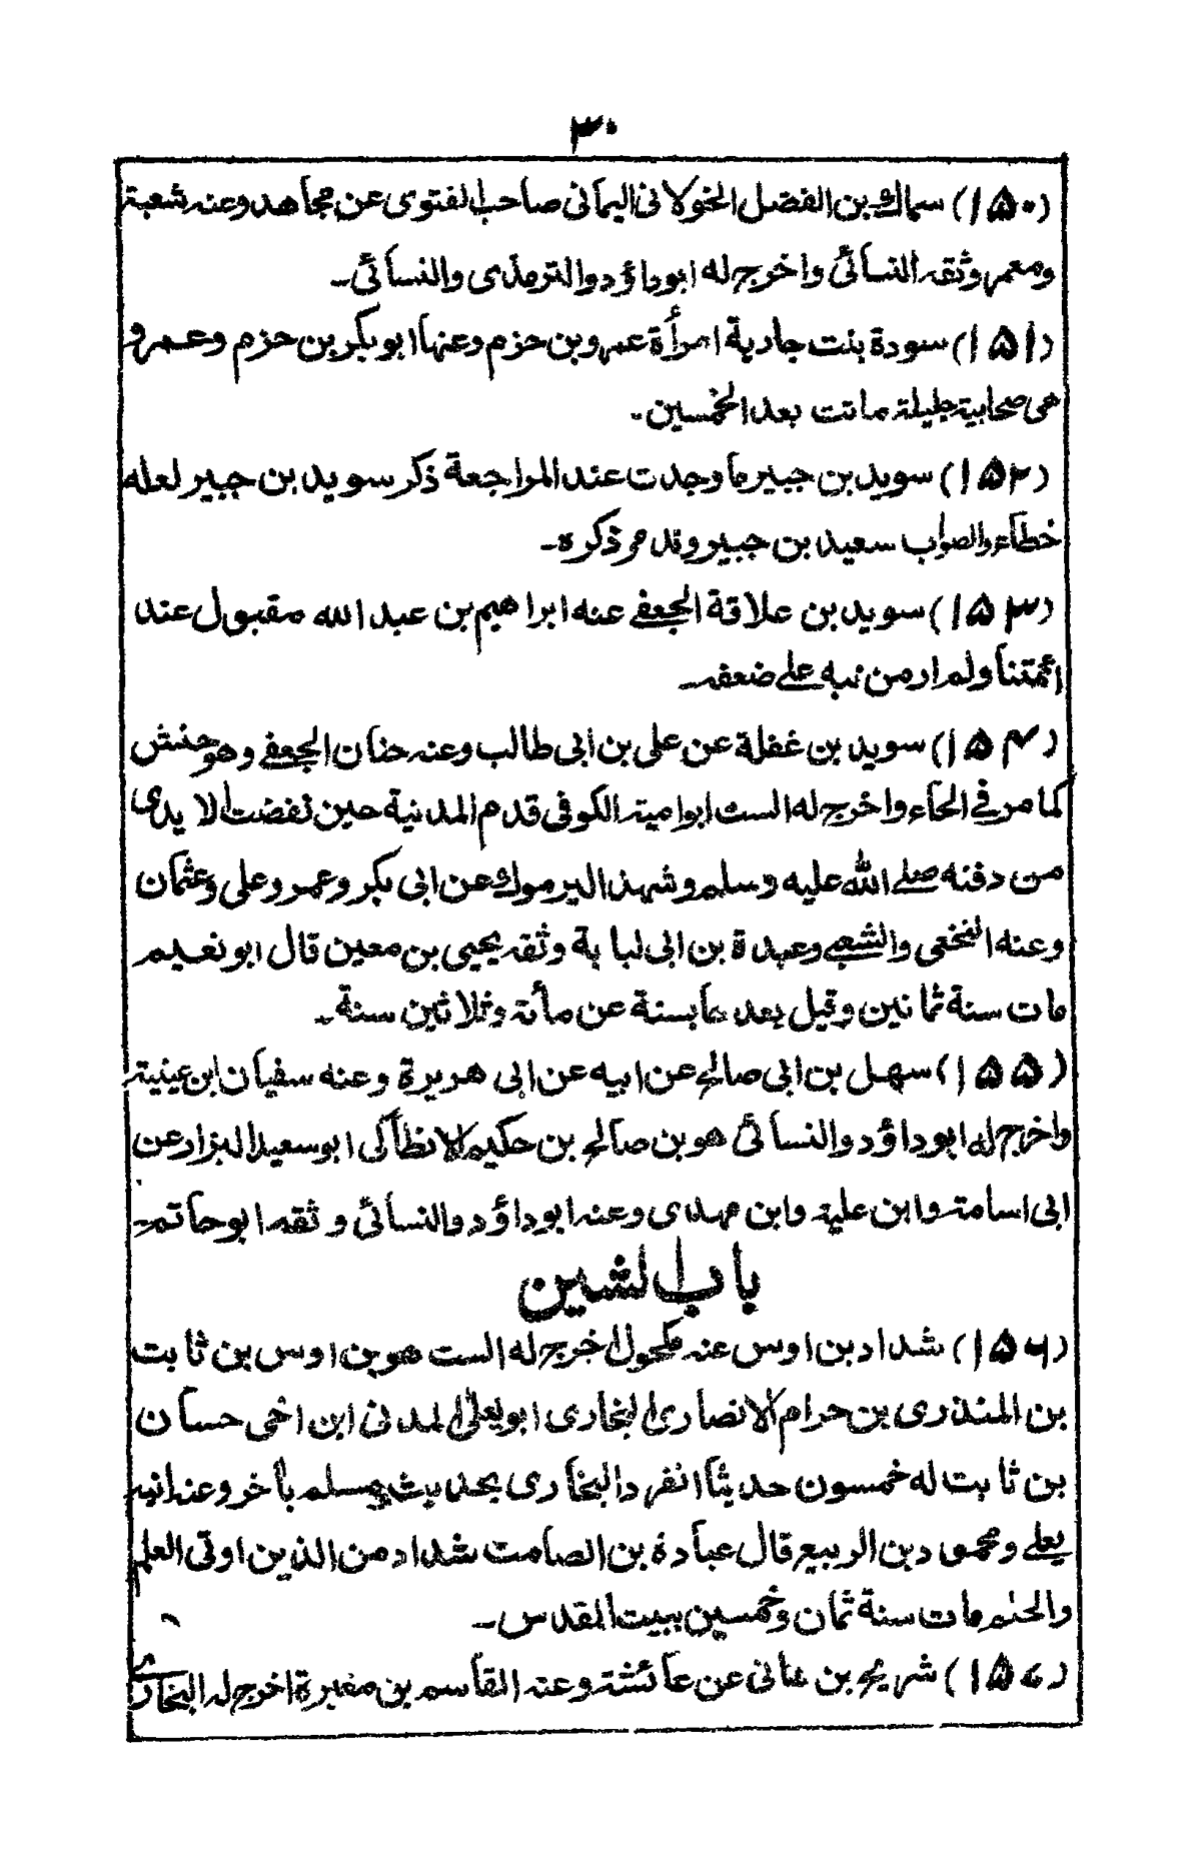 ۳۰
(۱۵۰) سماك بن الفضل الخولانى اليمانى صاحب الفتوى عن مجاهد وعنه شعبة
ومعمر وثقه النسائى واخرج له ابوداؤد والترمذى والنسائى۔
(۱۵۱) سودة بنت جارية امرأة عمرو بن حزم وعنها ابو بكر بن حزم وعمرو
هى صحابية جليلة ماتت بعد الخمسين۔
(۱۵۲) سويد بن جبير ما وجدت عند المراجعة ذكر سويد بن جبير لعله
خطاء والصواب سعيد بن جبير وقد مر ذكره۔
(۱۵۳) سويد بن علاقة الجعفے عنه ابراهيم بن عبد الله مقبول عند
ائمتنا ولم ار من نبه علے ضعفه۔
(۱۵۴) سويد بن غفلة عن على بن ابى طالب وعنه حنان الجعفے وهو حنش
كما مر فے الحاء واخرج له الست ابو امية الكوفى قدم المدنية حين نفضت الايدى
من دفنه صلے الله عليه وسلم وشهد اليرموك عن ابى بكر وعمر وعلى وعثمان
وعنه النخعى والشعبے وعبدة بن ابى لبابة وثقه يحيى بن معين قال ابو نعيم
مات سنة ثمانين وقيل بعد ها بسنة عن مأئة وثلاثين سنة۔
(۱۵۵) سهل بن ابى صالح عن ابيه عن ابى هريرة وعنه سفيان ابن عينية
واخرج له ابوداؤد والنسائى هو بن صالح بن حكيم الانطاكى ابو سعيد البزار عن
ابى اسامة وابن علية وابن مهدى وعنه ابوداؤد والنسائى وثقه ابو حاتم۔
باب الشين
(۱۵۶) شداد بن اوس عنه مكحول اخرج له الست هو بن اوس بن ثابت
بن المنذرى بن حرام الانصارى البخارى ابو يعلى المدنى ابن اخى حسان
بن ثابت له خمسون حديثا انفرد البخارى بحديث ومسلم باخر وعنه ابنه
يعلے ومحمود بن الربيع قال عبادة بن الصامت شداد من الذين اوتى العلم
والحلم مات سنة ثمان وخمسين ببيت المقدس۔
(۱۵۷) شريح بن هانى عن عائشة وعنه القاسم بن مغيرة اخرج له البخارى